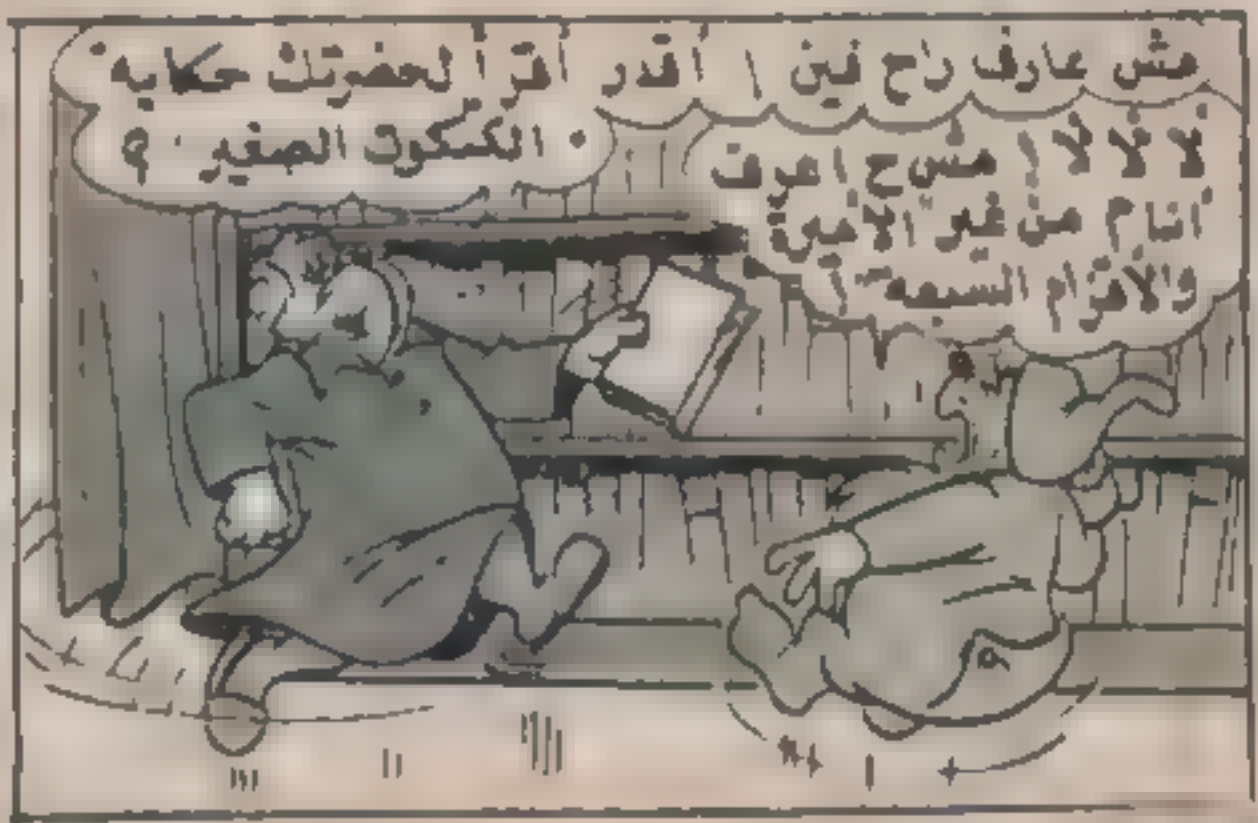 مش عارف راح فين ! أقدر أقرأ لحضرتك حكاية
الكتكوت الصغير . ؟
لا لا لا ! مش ح اعرف
انام من غير الاميرة
والاقزام السبعة !